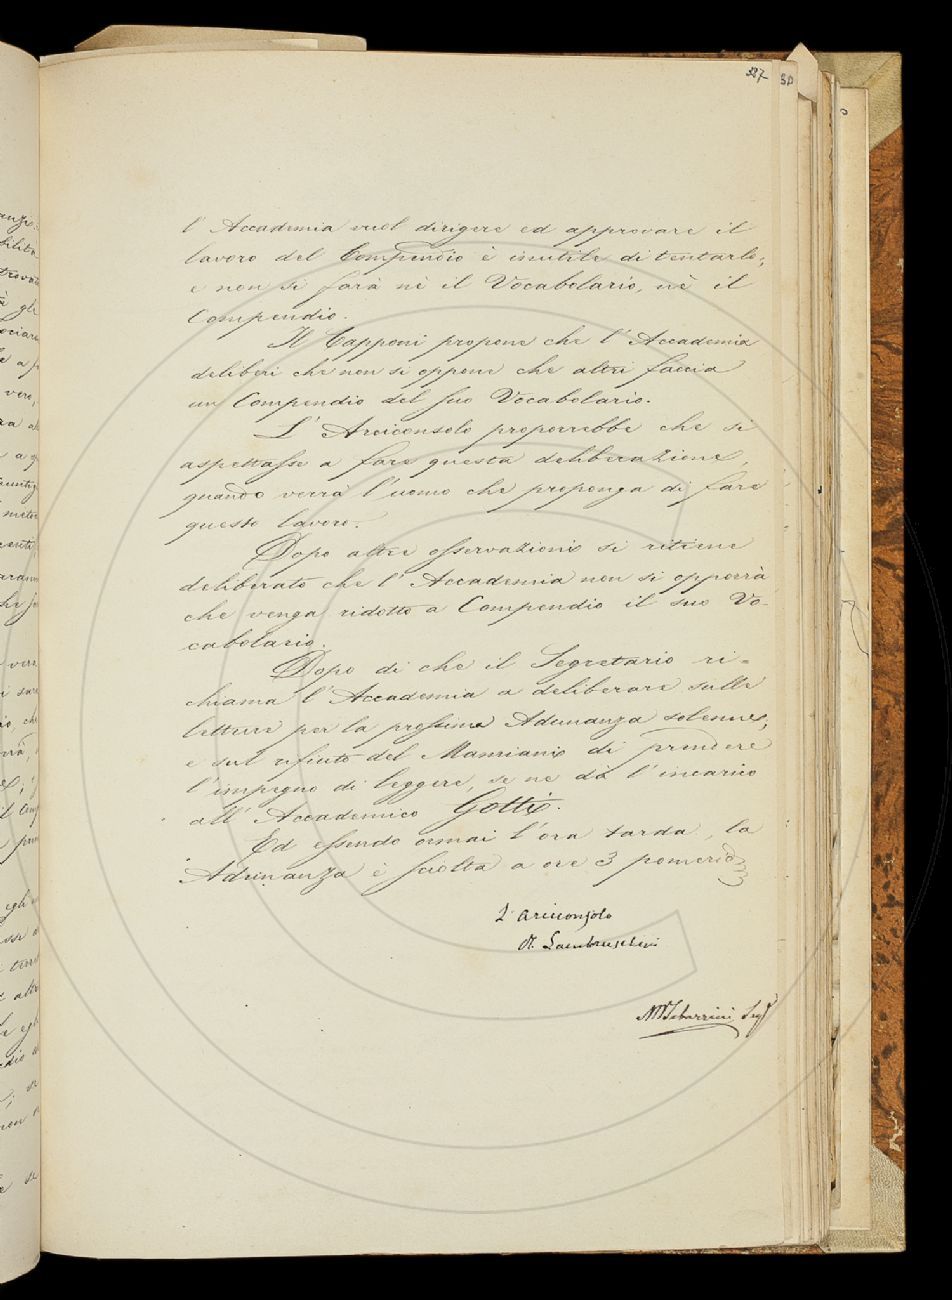 327
l' Accademia vuol dirigere ed approvare il
lavoro del Compendio è inutile di tentarlo;
e non si farà nè il Vocabolario, nè il
Compendio.
Il Capponi propone che l' Accademia
deliberi che non si oppone che altri faccia
un Compendio del suo Vocabolario.
L' Arciconsolo proporrebbe che si
aspettasse a fare questa deliberazione,
quando verrà l'uomo che proponga di fare
questo lavoro.
Dopo altre osservazioni si ritiene
deliberato che l' Accademia non si opporrà
che venga ridotto a Compendio il suo Vo-
cabolario.
Dopo di che il Segretario ri-
chiama l' Accademia a deliberare sulle
letture per la prossima Adunanza solenne,
e sul rifiuto del Mamiani di prendere
l'impegno di leggere, se ne dà l' incarico
all' Accademico Gotti.
Ed essendo ormai l'ora tarda, la
Adunanza è sciolta a ore 3 pomerid
L' arciconsolo
R. Lambruschini
M Tabarrini Seg